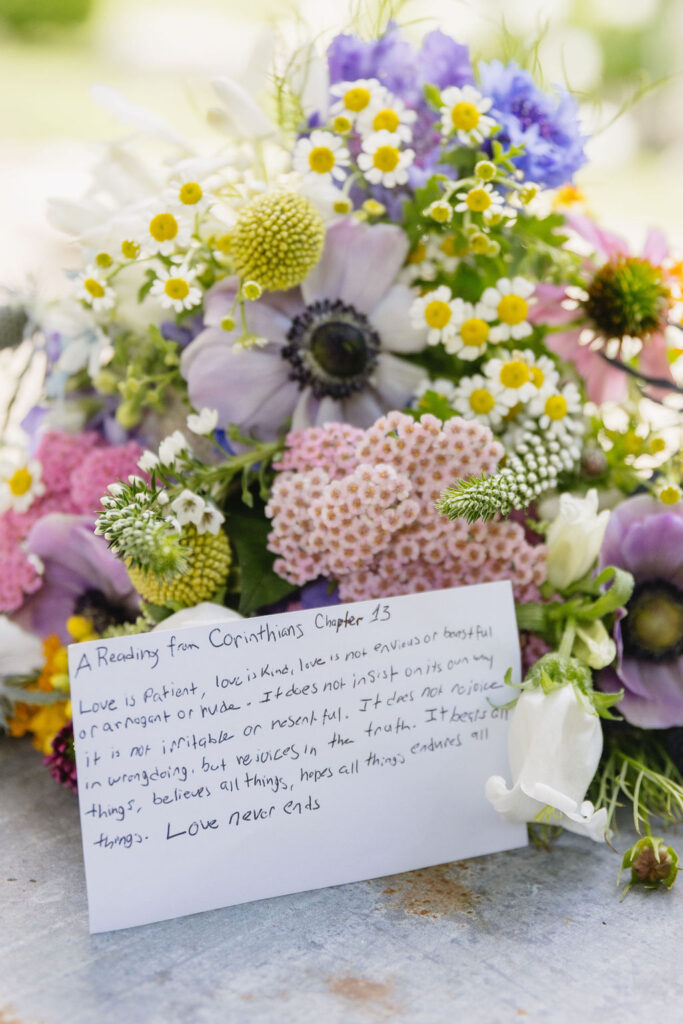 A Reading from Corinthians Chapter 13
Love is Patient, love is Kind, love is not envious or boastful
or arrogant or rude. It does not insist on its own way
it is not irritable or resentful. It does not rejoice
in wrongdoing, but rejoices in the truth. It bears all
things, believes all things, hopes all things endures all
things. Love never ends